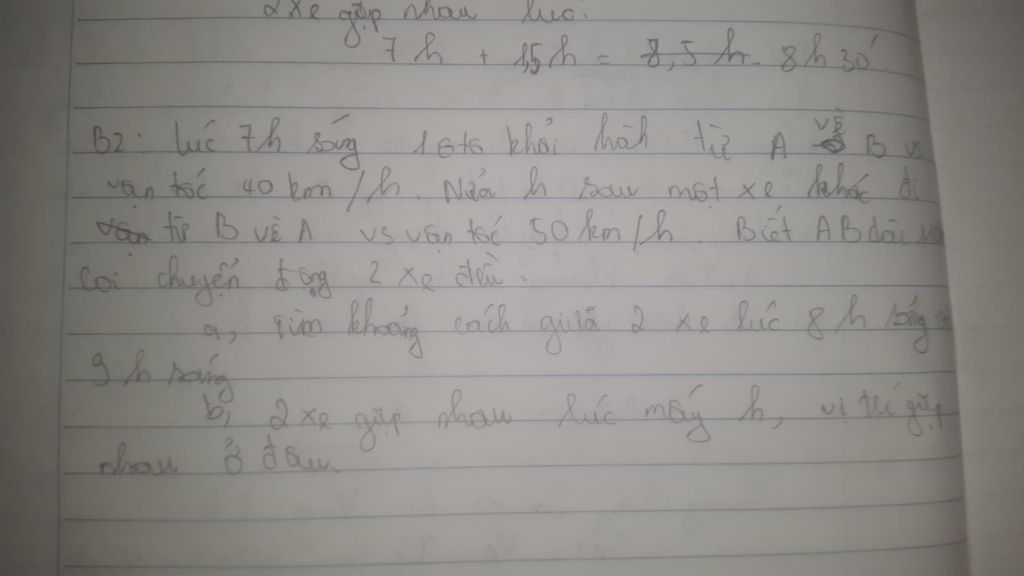 2 xe gặp nhau lúc:
7h + 1,5h = 8,5h - 8h30'
B2: lúc 7h sáng 1 ôtô khởi hành từ A về B vs
vận tốc 40 km/h. Nửa h sau một xe khác đi
từ B về A vs vận tốc 50 km/h. Biết AB dài
Coi chuyển động 2 xe đều.
a, Tìm khoảng cách giữa 2 xe lúc 8h sáng
9h sáng
b, 2 xe gặp nhau lúc mấy h, vị trí gặp
nhau ở đâu.